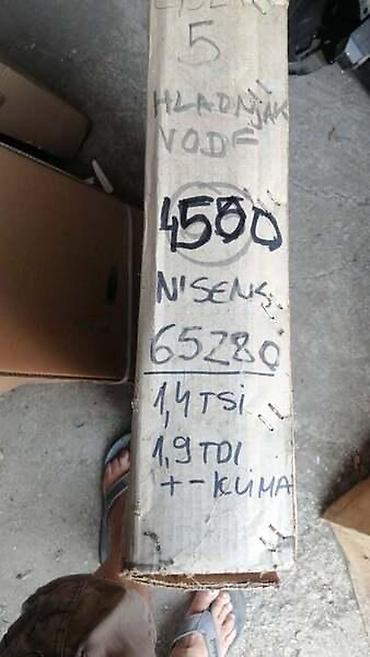 5
HLADNJAK
VODE
4500
NISENS
65280
1,4 TSI
1,9 TDI
+- KLIMA